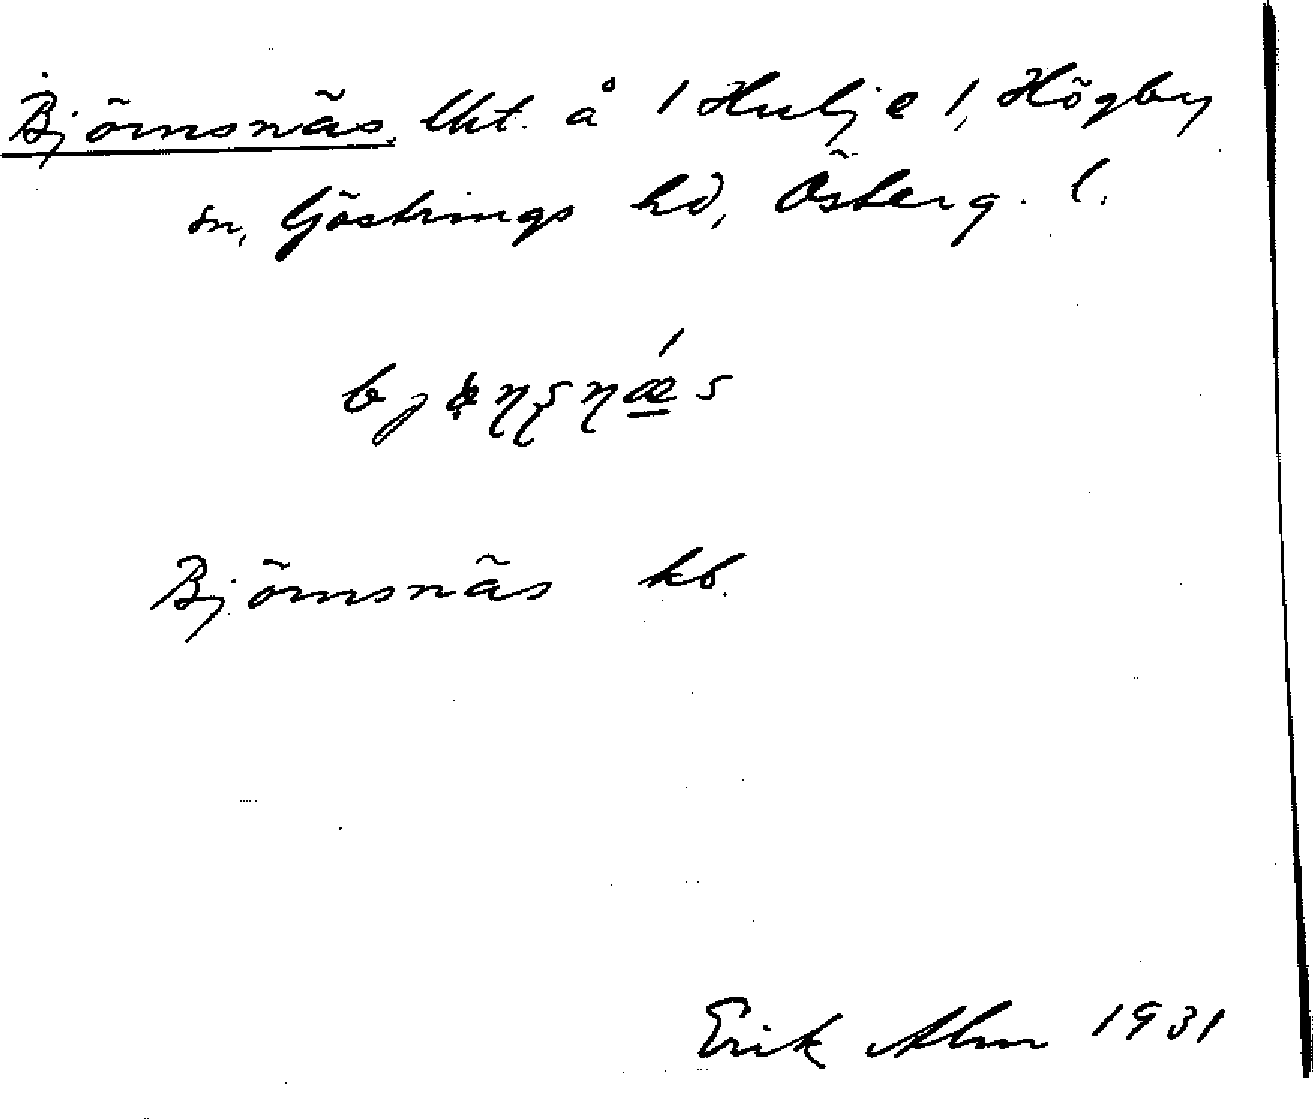 Björnsnäs, lht. å 1 Hulje 1, Högby
sn, Göstrings hd, Österg. l.
Björnsnäs kb.
Erik Alm 1931